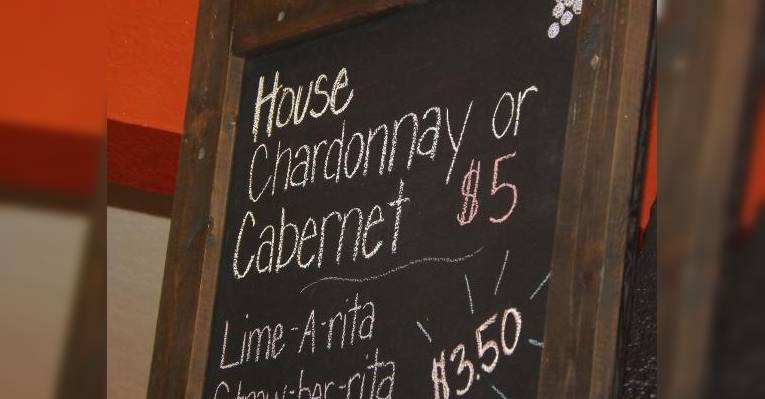 House
Chardonnay or
Cabernet $5
Lime-A-rita
$3.50
Straw-ber-rita